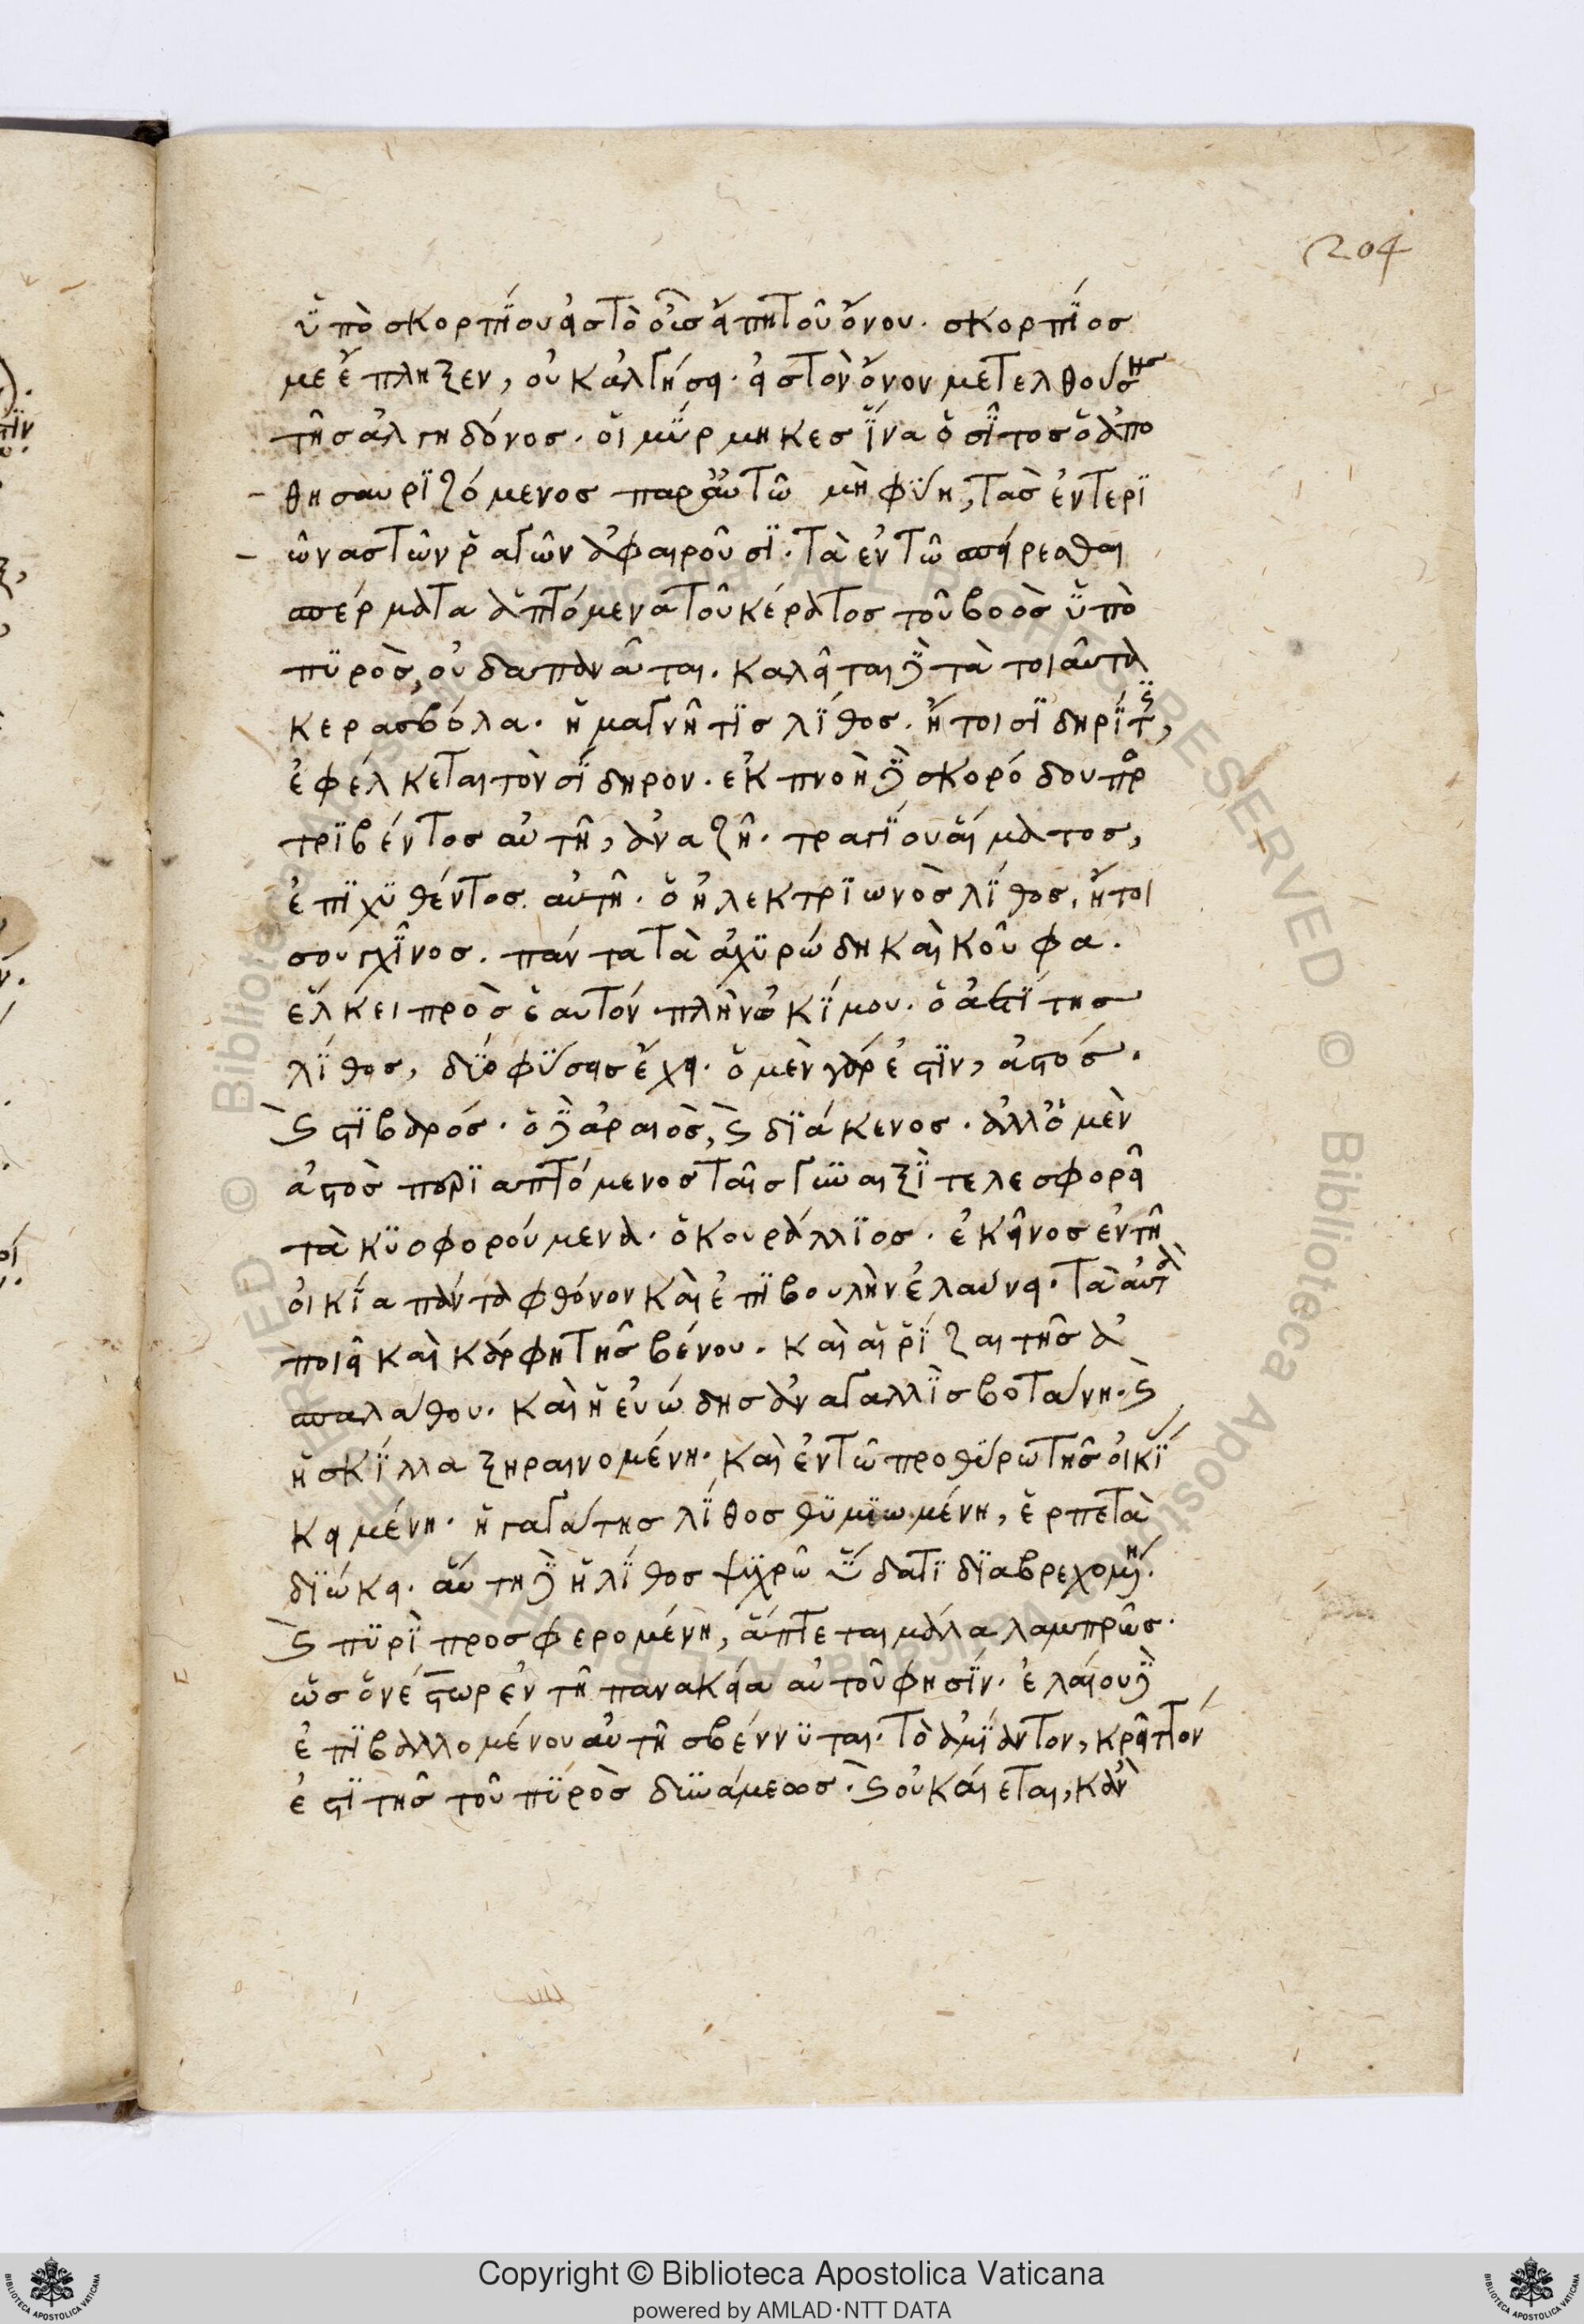 204
ὑπὸ σκορπίου εἰς τὸ οὖς εἴπῃ τοῦ ὄνου· σκορπίος
με ἔπληξεν, οὐκ ἀλγήσει· εἰς τὸν ὄνον μετελθούσης
τῆς ἀλγηδόνος· οἱ μύρμηκες ἵνα ὁ σῖτος ὁ ἀπο
θησαυριζόμενος παρ' αὐτῶ μὴ φύη, τὰς ἐντερι
ώνας τῶν ῥαγῶν ἀφαιροῦσι· τὰ ἐν τῶ σπείρεσθαι
σπέρματα ἁπτόμενα τοῦ κέρατος τοῦ βοὸς ὑπὸ
πυρὸς, οὐ δαπανᾶται· καλεῖται δὲ τὰ τοιαῦτα
κερασβόλα· ἡ μαγνῆτις λίθος· ἤτοι σιδηρίτ,
ἐφέλκεται τὸν σίδηρον· ἐκπνοὴ δὲ σκορόδου πρ
τριβέντος αὐτῆ, ἀναζῆ· τραγίου αἵματος,
ἐπιχυθέντος αὐτῆ· ὁ ἠλεκτριωνὸς λίθος, ἤτοι
σουγχῖνος· πάντα τὰ ἀχυρώδη καὶ κοῦφα·
ἕλκει πρὸς ἑαυτόν πλὴν ὠκίμου· ὁ ἀετίτης
λίθος, δύο φύσεις ἔχει· ὁ μὲν γάρ ἐστιν, ἀετός·
καὶ στιβαρός· ὁ δὲ ἀραιὸς, καὶ διάκενος· ἀλλ' ὁ μὲν
ἀετὸς περιαπτόμενος ταῖς γυναιξὶ τελεσφορεῖ
τὰ κυοφορούμενα· ὁ κουράλλιος· ἐκεῖνος ἐν τῆ
οἰκία πάντα φθόνον καὶ ἐπιβουλὴν ἐλαύνει· τὰ αὐτὰ
ποιεῖ καὶ κάρφη τῆς βένου· καὶ αἱ ῥίζαι τῆς ἀ
σπαλάθου· καὶ ἡ εὐώδης ἀναγαλλὶς βοτάνη· καὶ
ἡ σκίλλα ξηραινομένη· καὶ ἐν τῶ προθύρω τῆς οἰκί
κειμένη· ἡ γαγάτης λίθος θυμιωμένη, ἑρπετὰ
διώκει· αὕτη δὲ ἡ λίθος ψυχρῶ ὕδατι διαβρεχομένη·
καὶ πυρὶ προσφερομένη, ἅπτεται μάλα λαμπρῶς·
ὡς ὁ νέστωρ ἐν τῆ πανακεία αὐτοῦ φησίν· ἐλαίου δὲ
ἐπιβαλλομένου αὐτῆ σβέννυται· τὸ ἀμίαντον, κρεῖττον
ἐστὶ τῆς τοῦ πυρὸς δυνάμεως· καὶ οὐ καίεται, κἂν
Copyright © Biblioteca Apostolica Vaticana
powered by AMLAD·NTT DATA